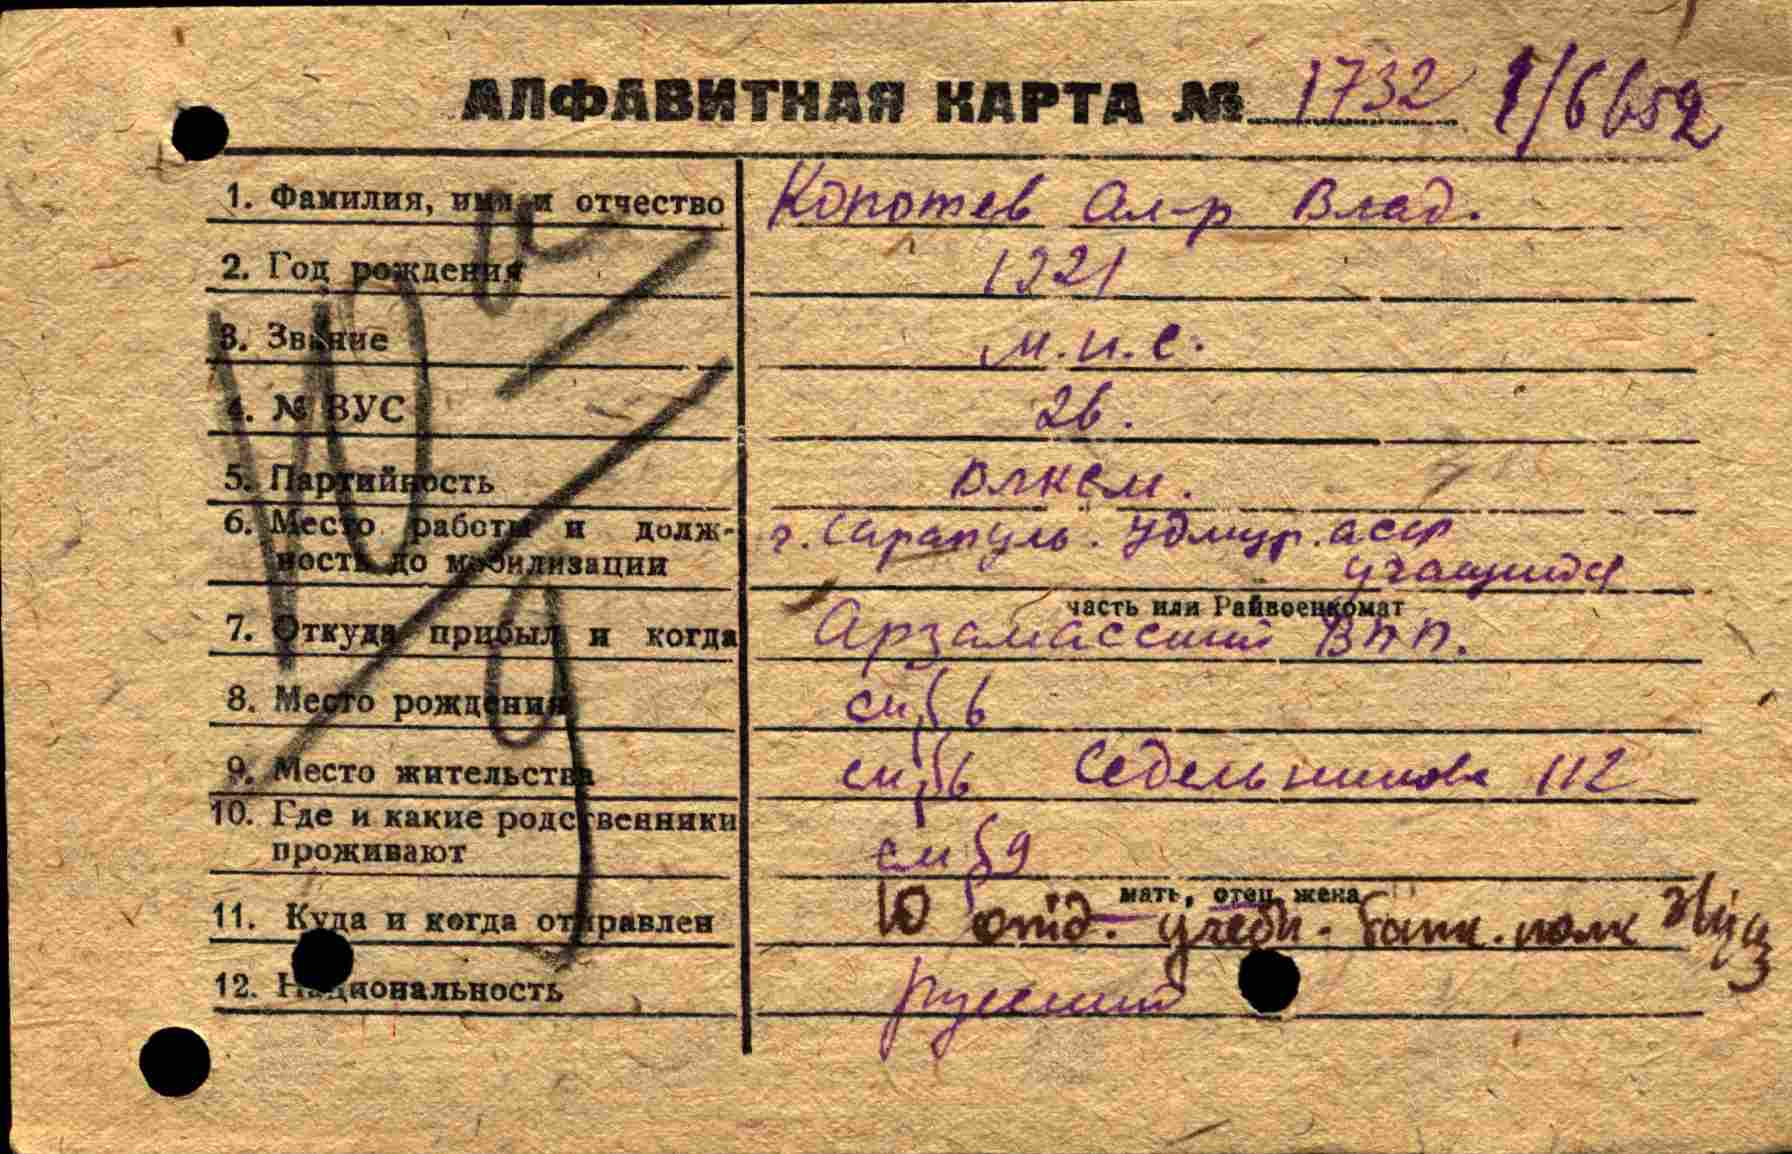 АЛФАВИТНАЯ КАРТА № 1732 1/6652
1. Фамилия, имя и отчество Копотев Ал-р Влад.
2. Год рождения 1921
3. Звание м.и.с.
4. № ВУС 2в.
5. Партийность ВЛКСМ.
6. Место работы и долж- г. Сарапуль. Удмур. АССР
ность до мобилизации учащийся
часть или Райвоенкомат
7. Откуда прибыл и когда Арзамасский ВПП.
8. Место рождения см. § 6
9. Место жительства см. § 6 Седельникова 112
10. Где и какие родственники
проживают см § 9
мать, отец, жена
11. Куда и когда отправлен 10 отд. учебн. танк. полк
12. Национальность русский